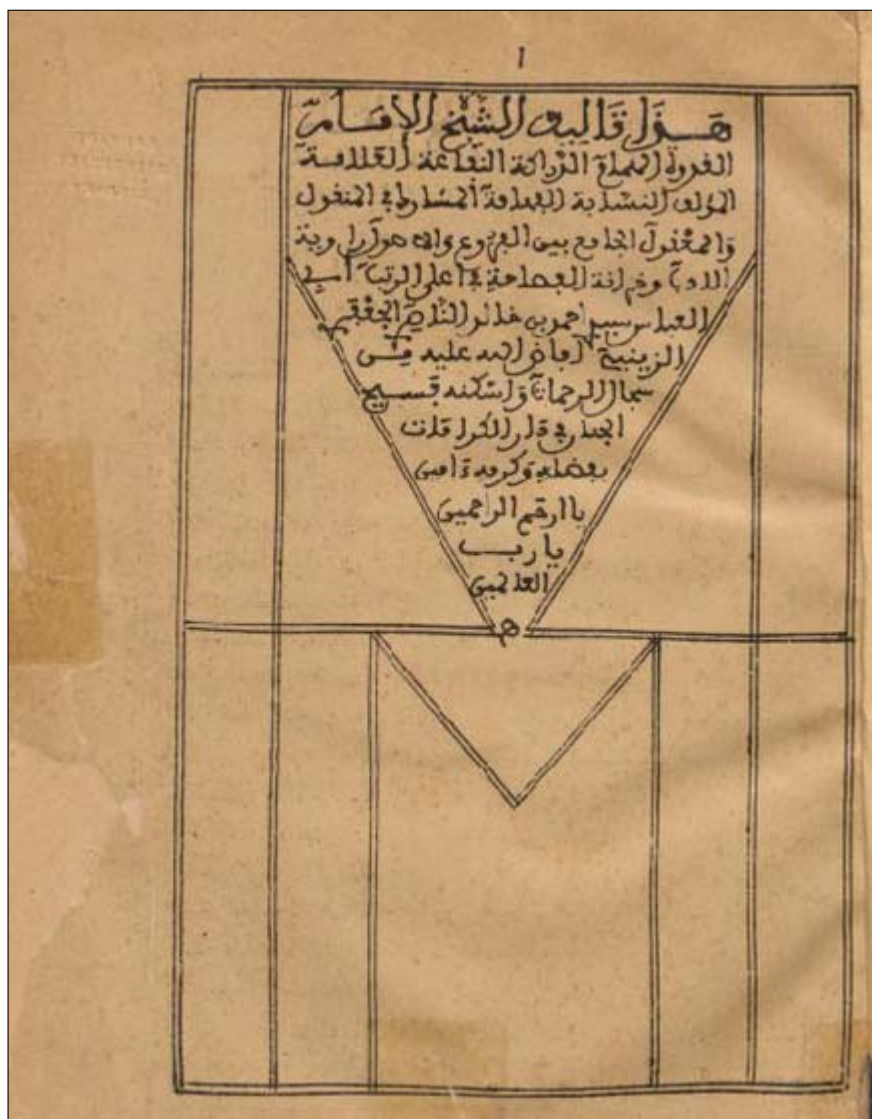 1
هَذَا تَأليف الشَّيْخ الإمَام
القدوة الهمام الدراكة النفاعة العلامة
المؤلف النسابة الفهامة المشارك في المنقول
والمعقول الجامع بين الفروع والاصول راوية
الادب وخزانة الفصاحة في اعلى الرتب أبي
العباس سيدي احمد بن خالد الناصري الجعفري
الزينبي افاض الله عليه من
سجال الرحمات واسكنه فسيح
الجنان في دار الكرامات
بفضله وكرمه ءامين
يا ارحم الراحمين
يا رب
العالمين